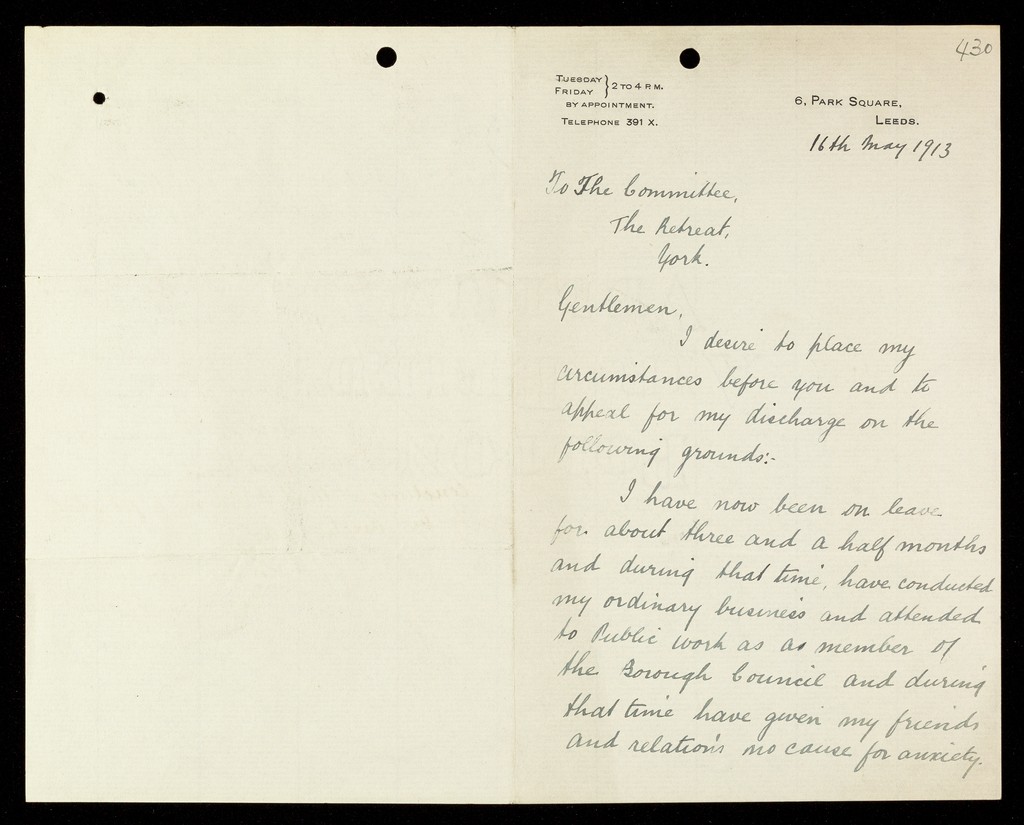 430
TUESDAY
FRIDAY } 2 TO 4 P.M.
BY APPOINTMENT.
TELEPHONE 391 X.
6, PARK SQUARE,
LEEDS.
16th May 1913
To The Committee,
The Retreat,
York.
Gentlemen,
I desire to place my
circumstances before you and to
appeal for my discharge on the
following grounds:-
I have now been on leave
for about three and a half months
and during that time, have conducted
my ordinary business and attended
to Public work as as member of
the Borough Council and during
that time have given my friends
and relations no cause for anxiety.